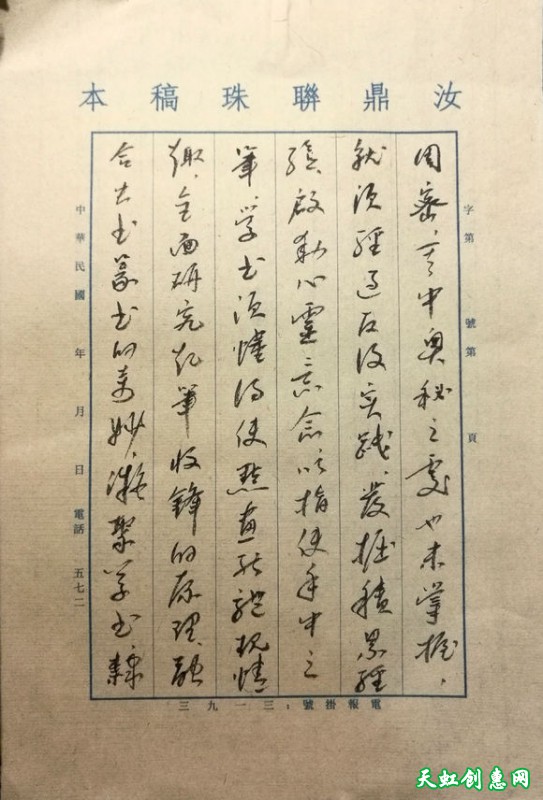 汝鼎聯珠稿本
字第　號第　頁
周密，其中奥秘之處也未掌握，
就须經过反復实践、发掘積累經
驗，啟動心靈意念以指使手中之
筆，学书须懂得使點画能體現情
趣，全面研究起筆收鋒的原理，融
合古书篆书的奇妙，凝聚草书、隸
中華民國　年　月　日　電話　五七二
電報掛號：三一九三
天虹创惠网